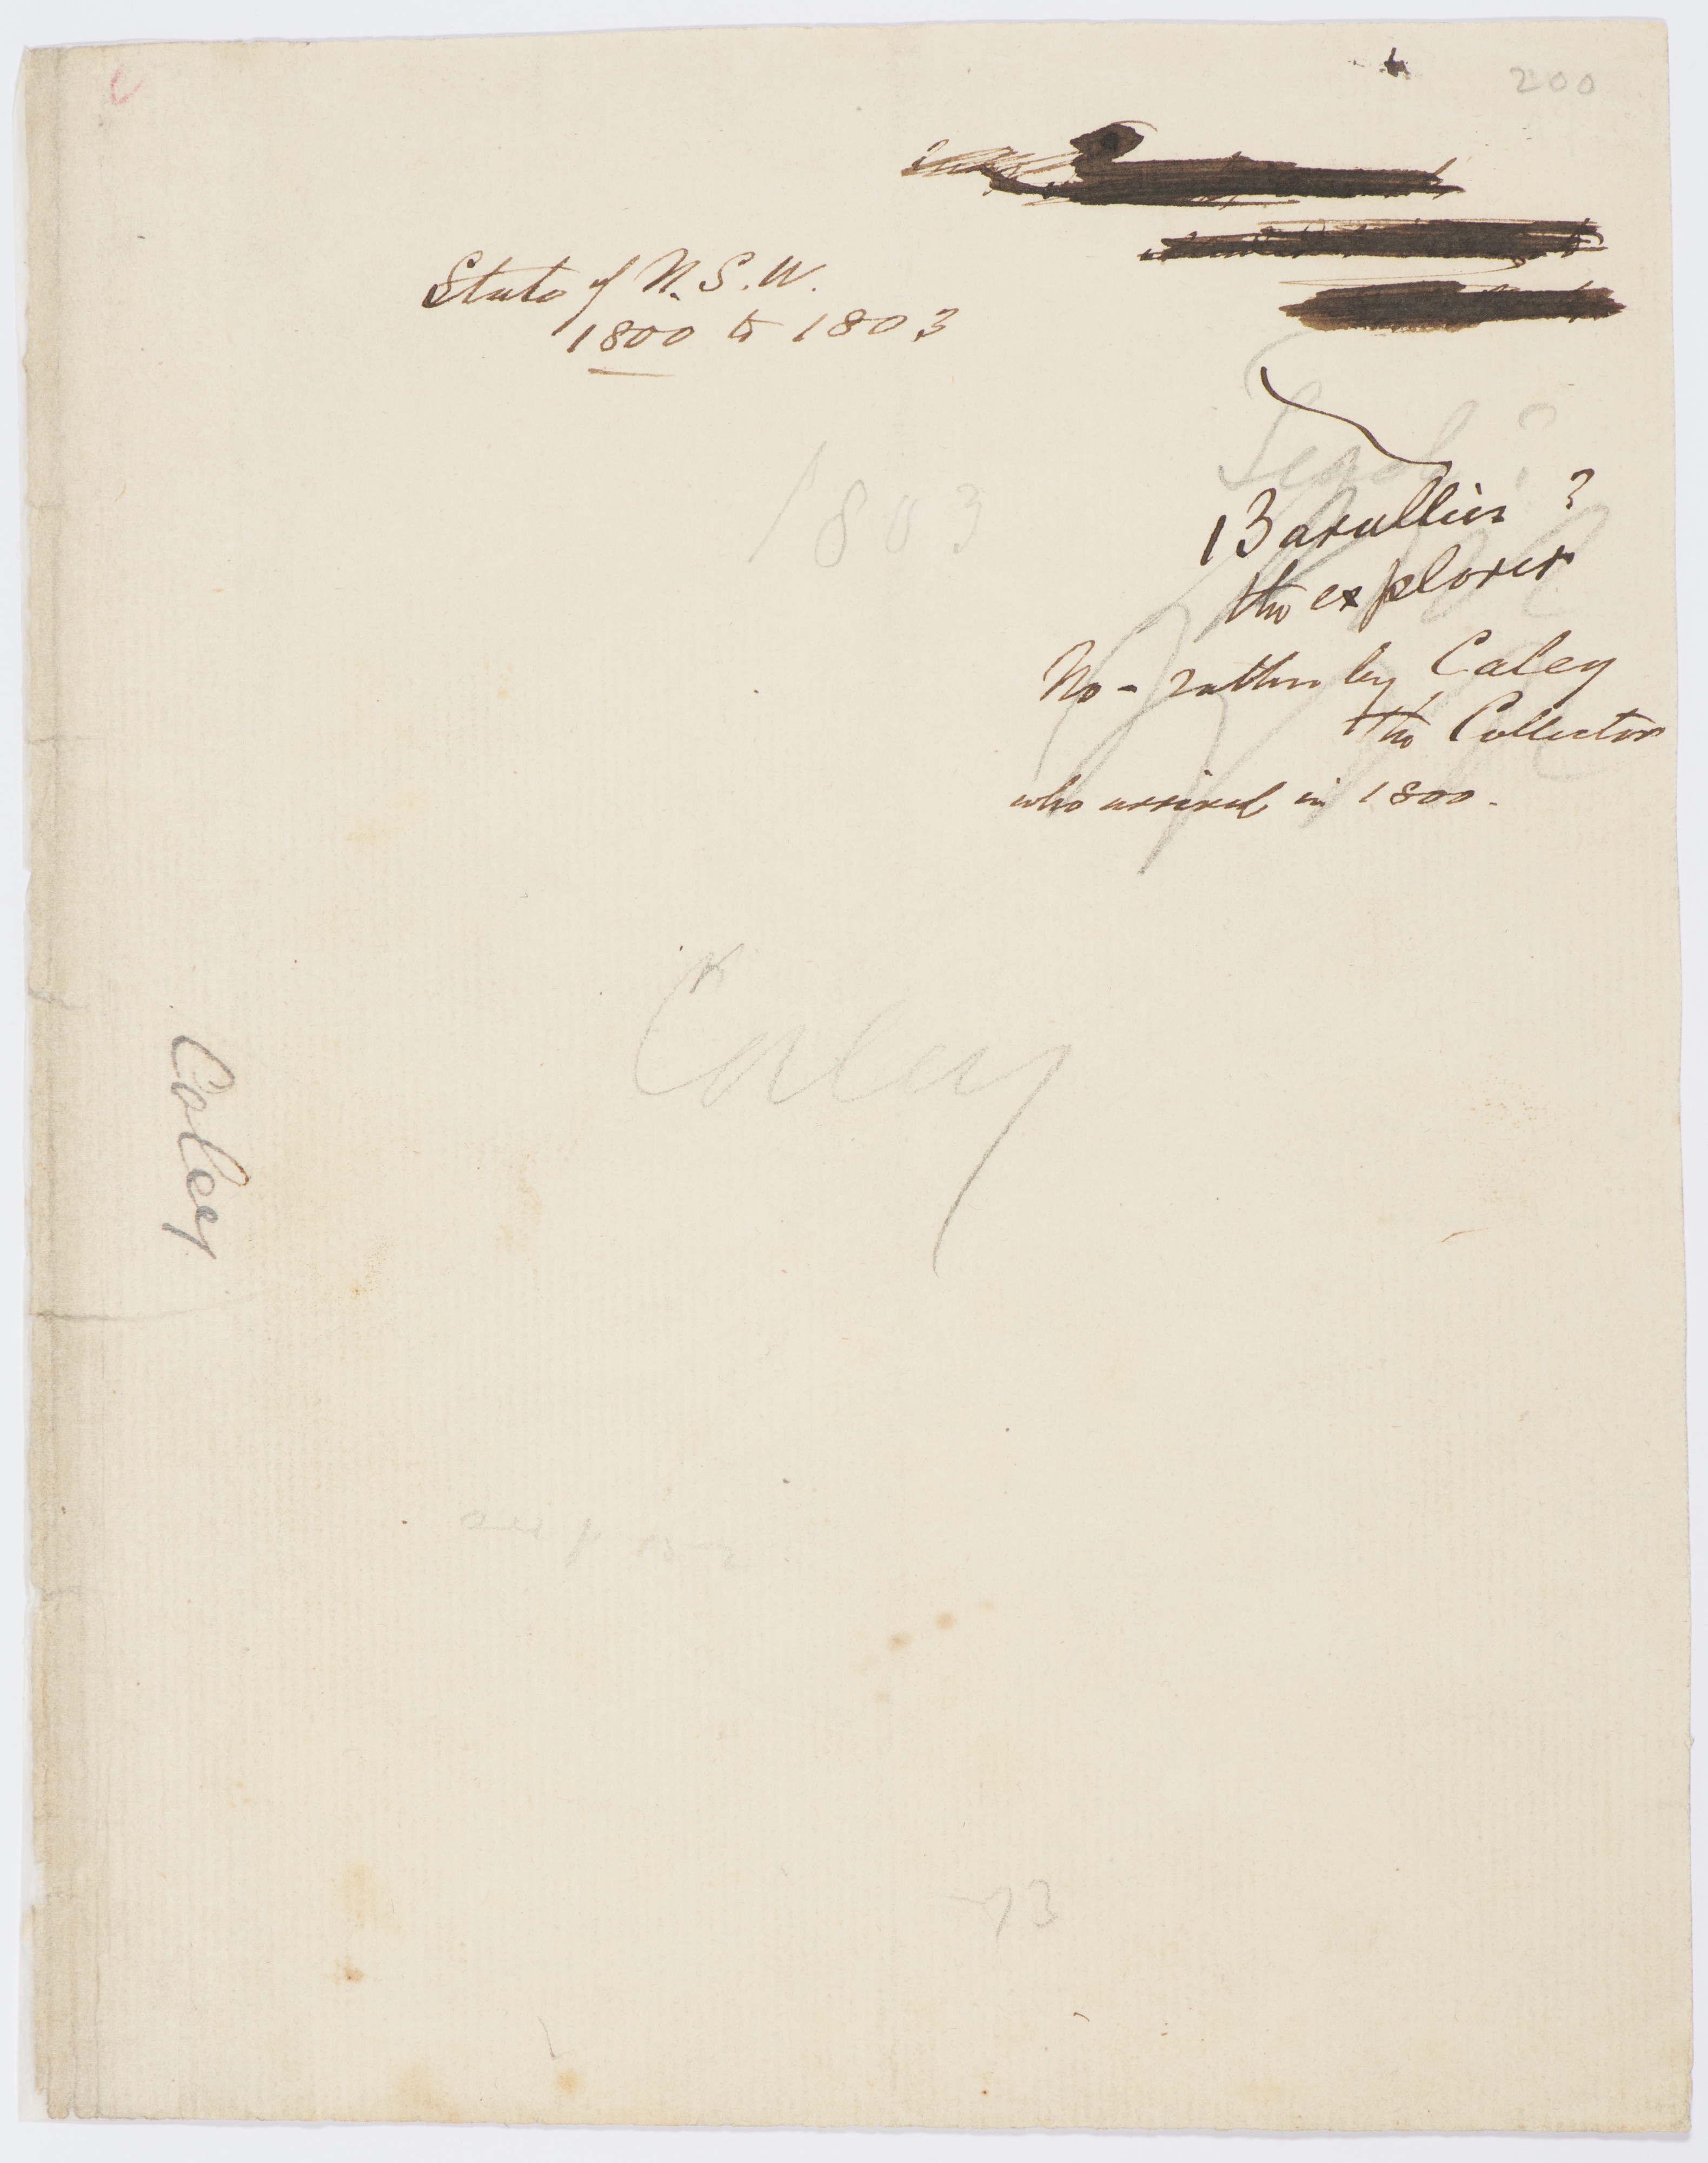 200
State of N.S.W.
1800 to 1803
1803
Barallier ?
the explorer
No - rather by Caley
the Collector
who arrived in 1800.
Caley
Caley
73